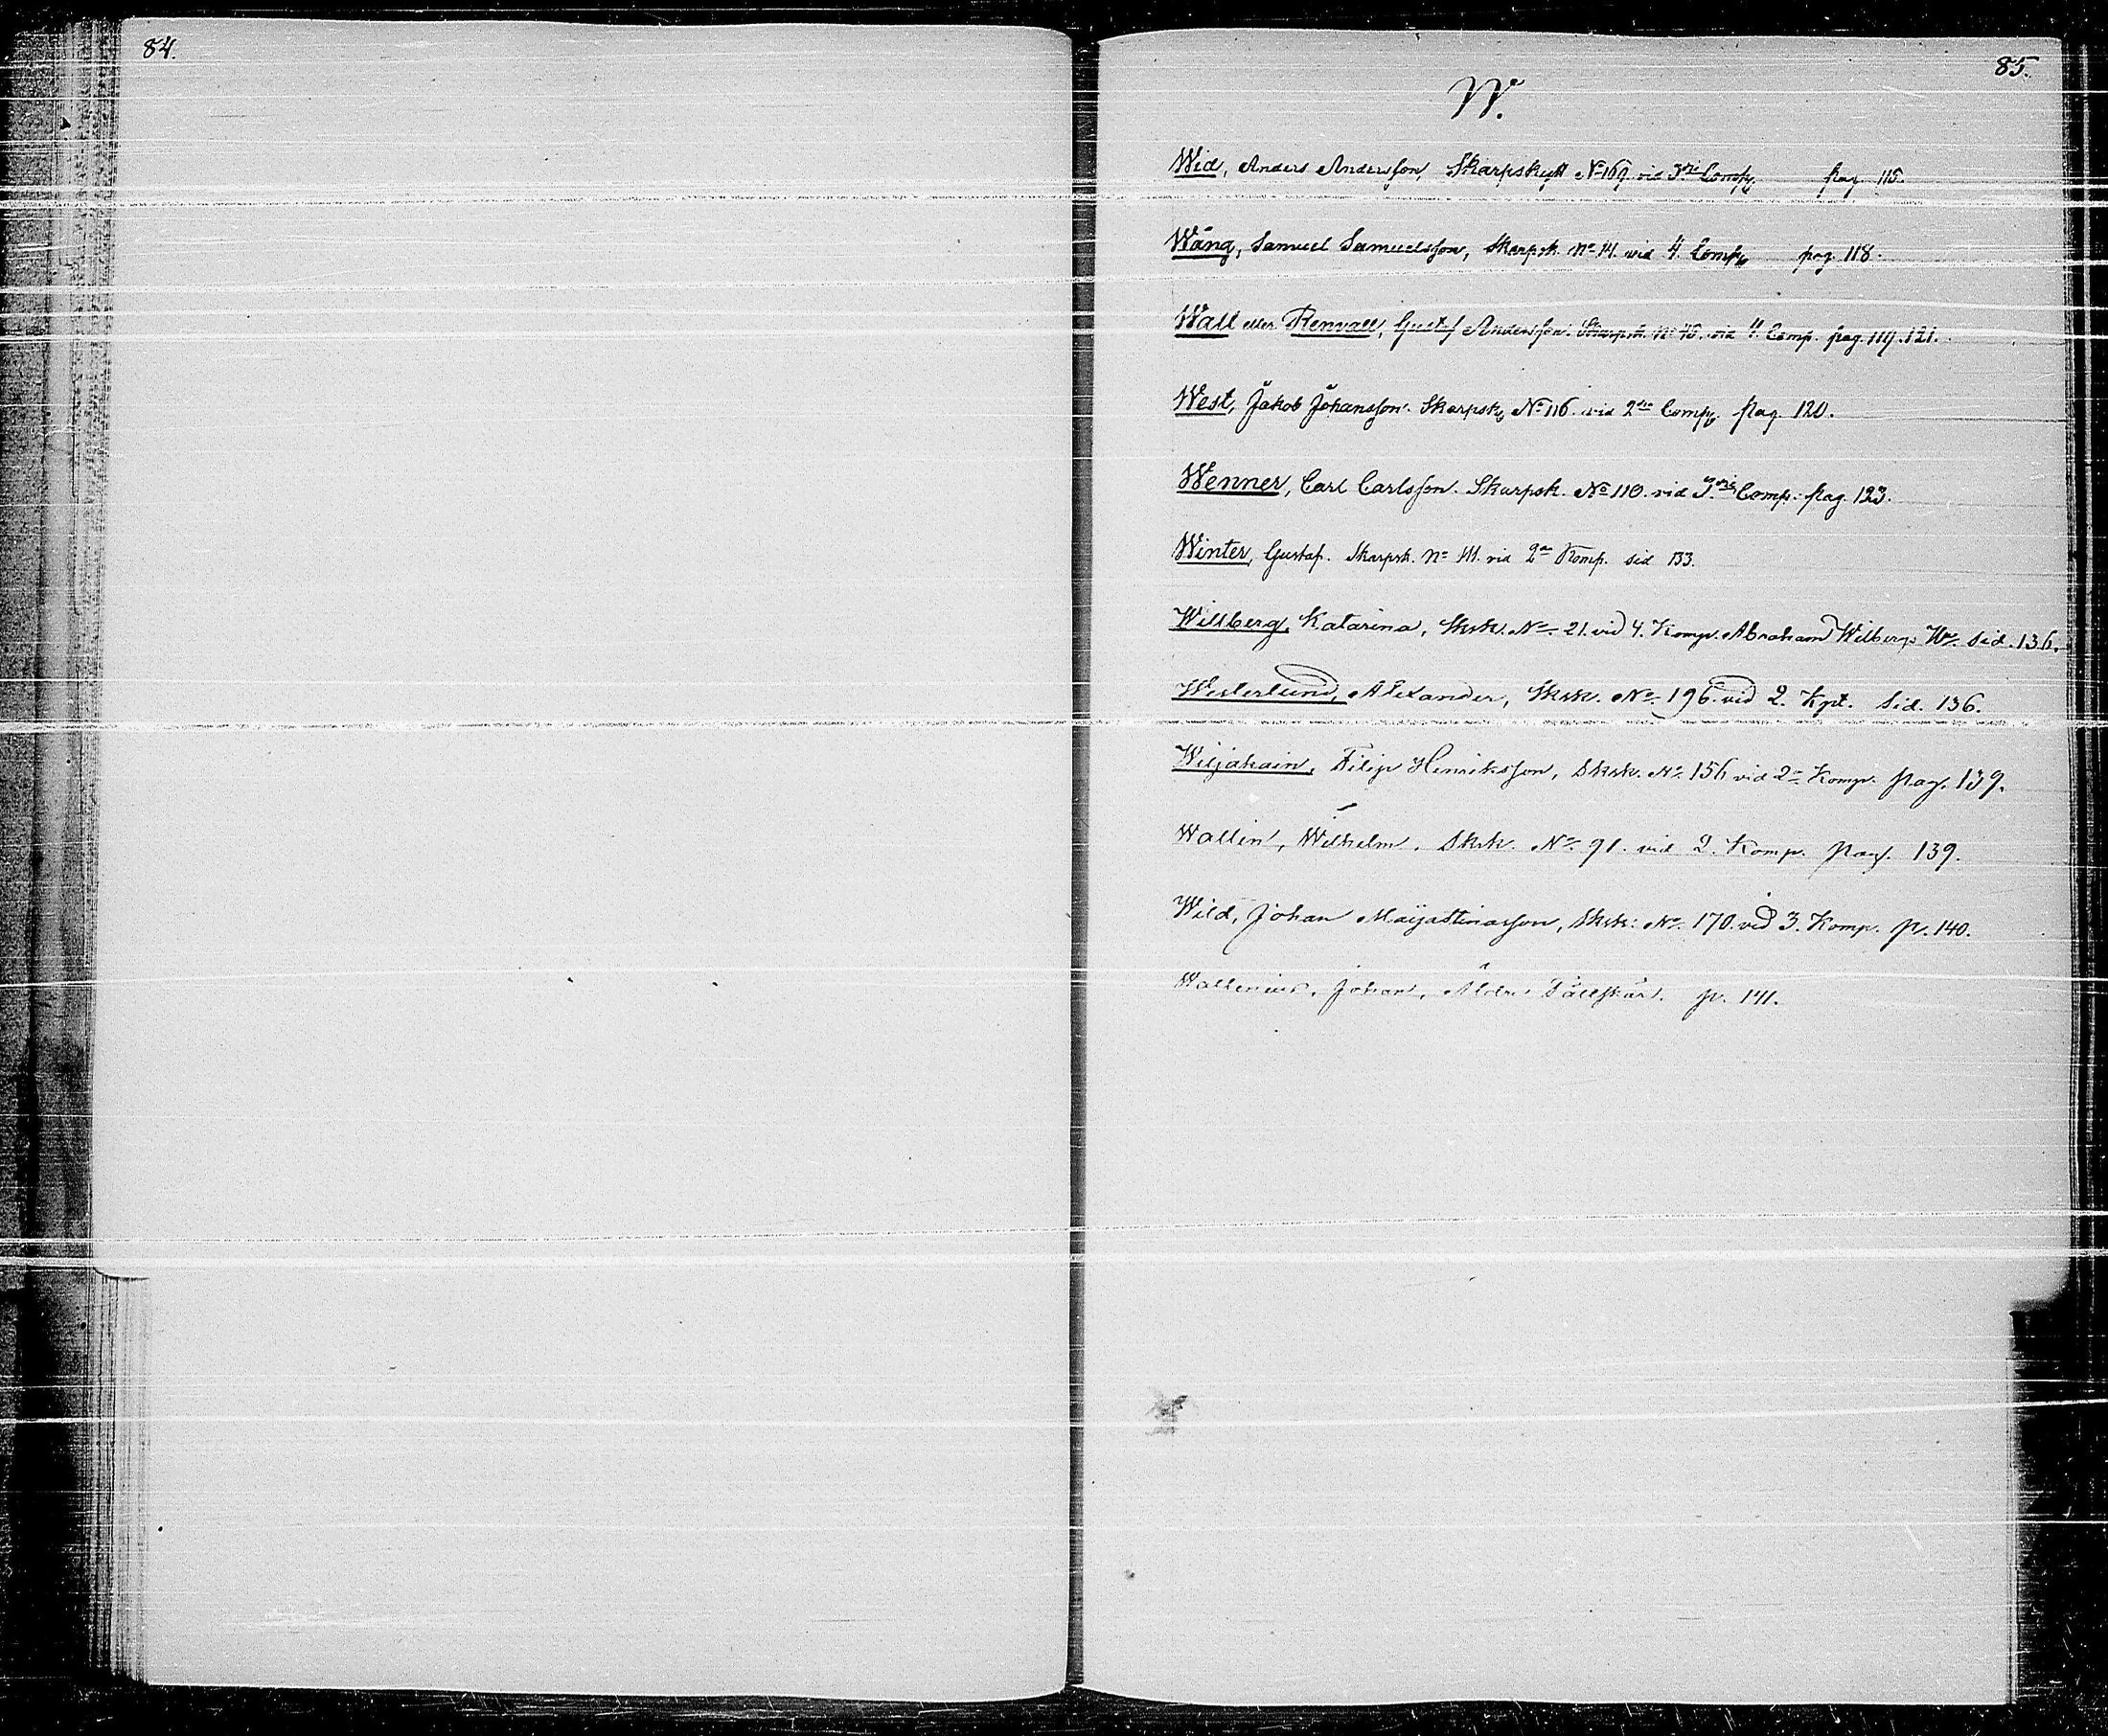 84.
85.
W.
Wid, Anders Andersson, Skarpskytt No 169. vid 3dje Compy. pag. 115.
Wäng, Samuel Samuelsson, Skarpsk. No 14. vid 4. Compy pag 118.
Wall eller Renvall, Gustaf Andersson. Skarpsk. No 45. vid 4. Comp. pag. 119. 121.
West, Jakob Johansson. Skarpsk. No 116. vid 2dra Compy. pag. 120.
Wenner, Carl Carlsson. Skarpsk. No 110. vid 3dje Comp. pag. 123.
Winter, Gustaf. Skarpsk. No 111. vid 2a Komp. sid 133.
Willberg, Katarina, Skrsk. No. 21. vid 4. Komp. Abraham Wilbergs sid. 136.
Westerlund, Alexander, Skrsk. No. 196. vid 2. Kpt. Sid. 136.
Wiljakain, Filip Henriksson, Skrsk. No. 156 vid 2a Komp. pag. 139.
Wallin, Wilhelm, Skrk. No. 91. vid 2. Komp. pag. 139.
Wild, Johan Maijastinasson, Skrk: No. 170. vid 3. Komp. p. 140.
Wallenius, Johan, Äldre Fältskär. p. 141.